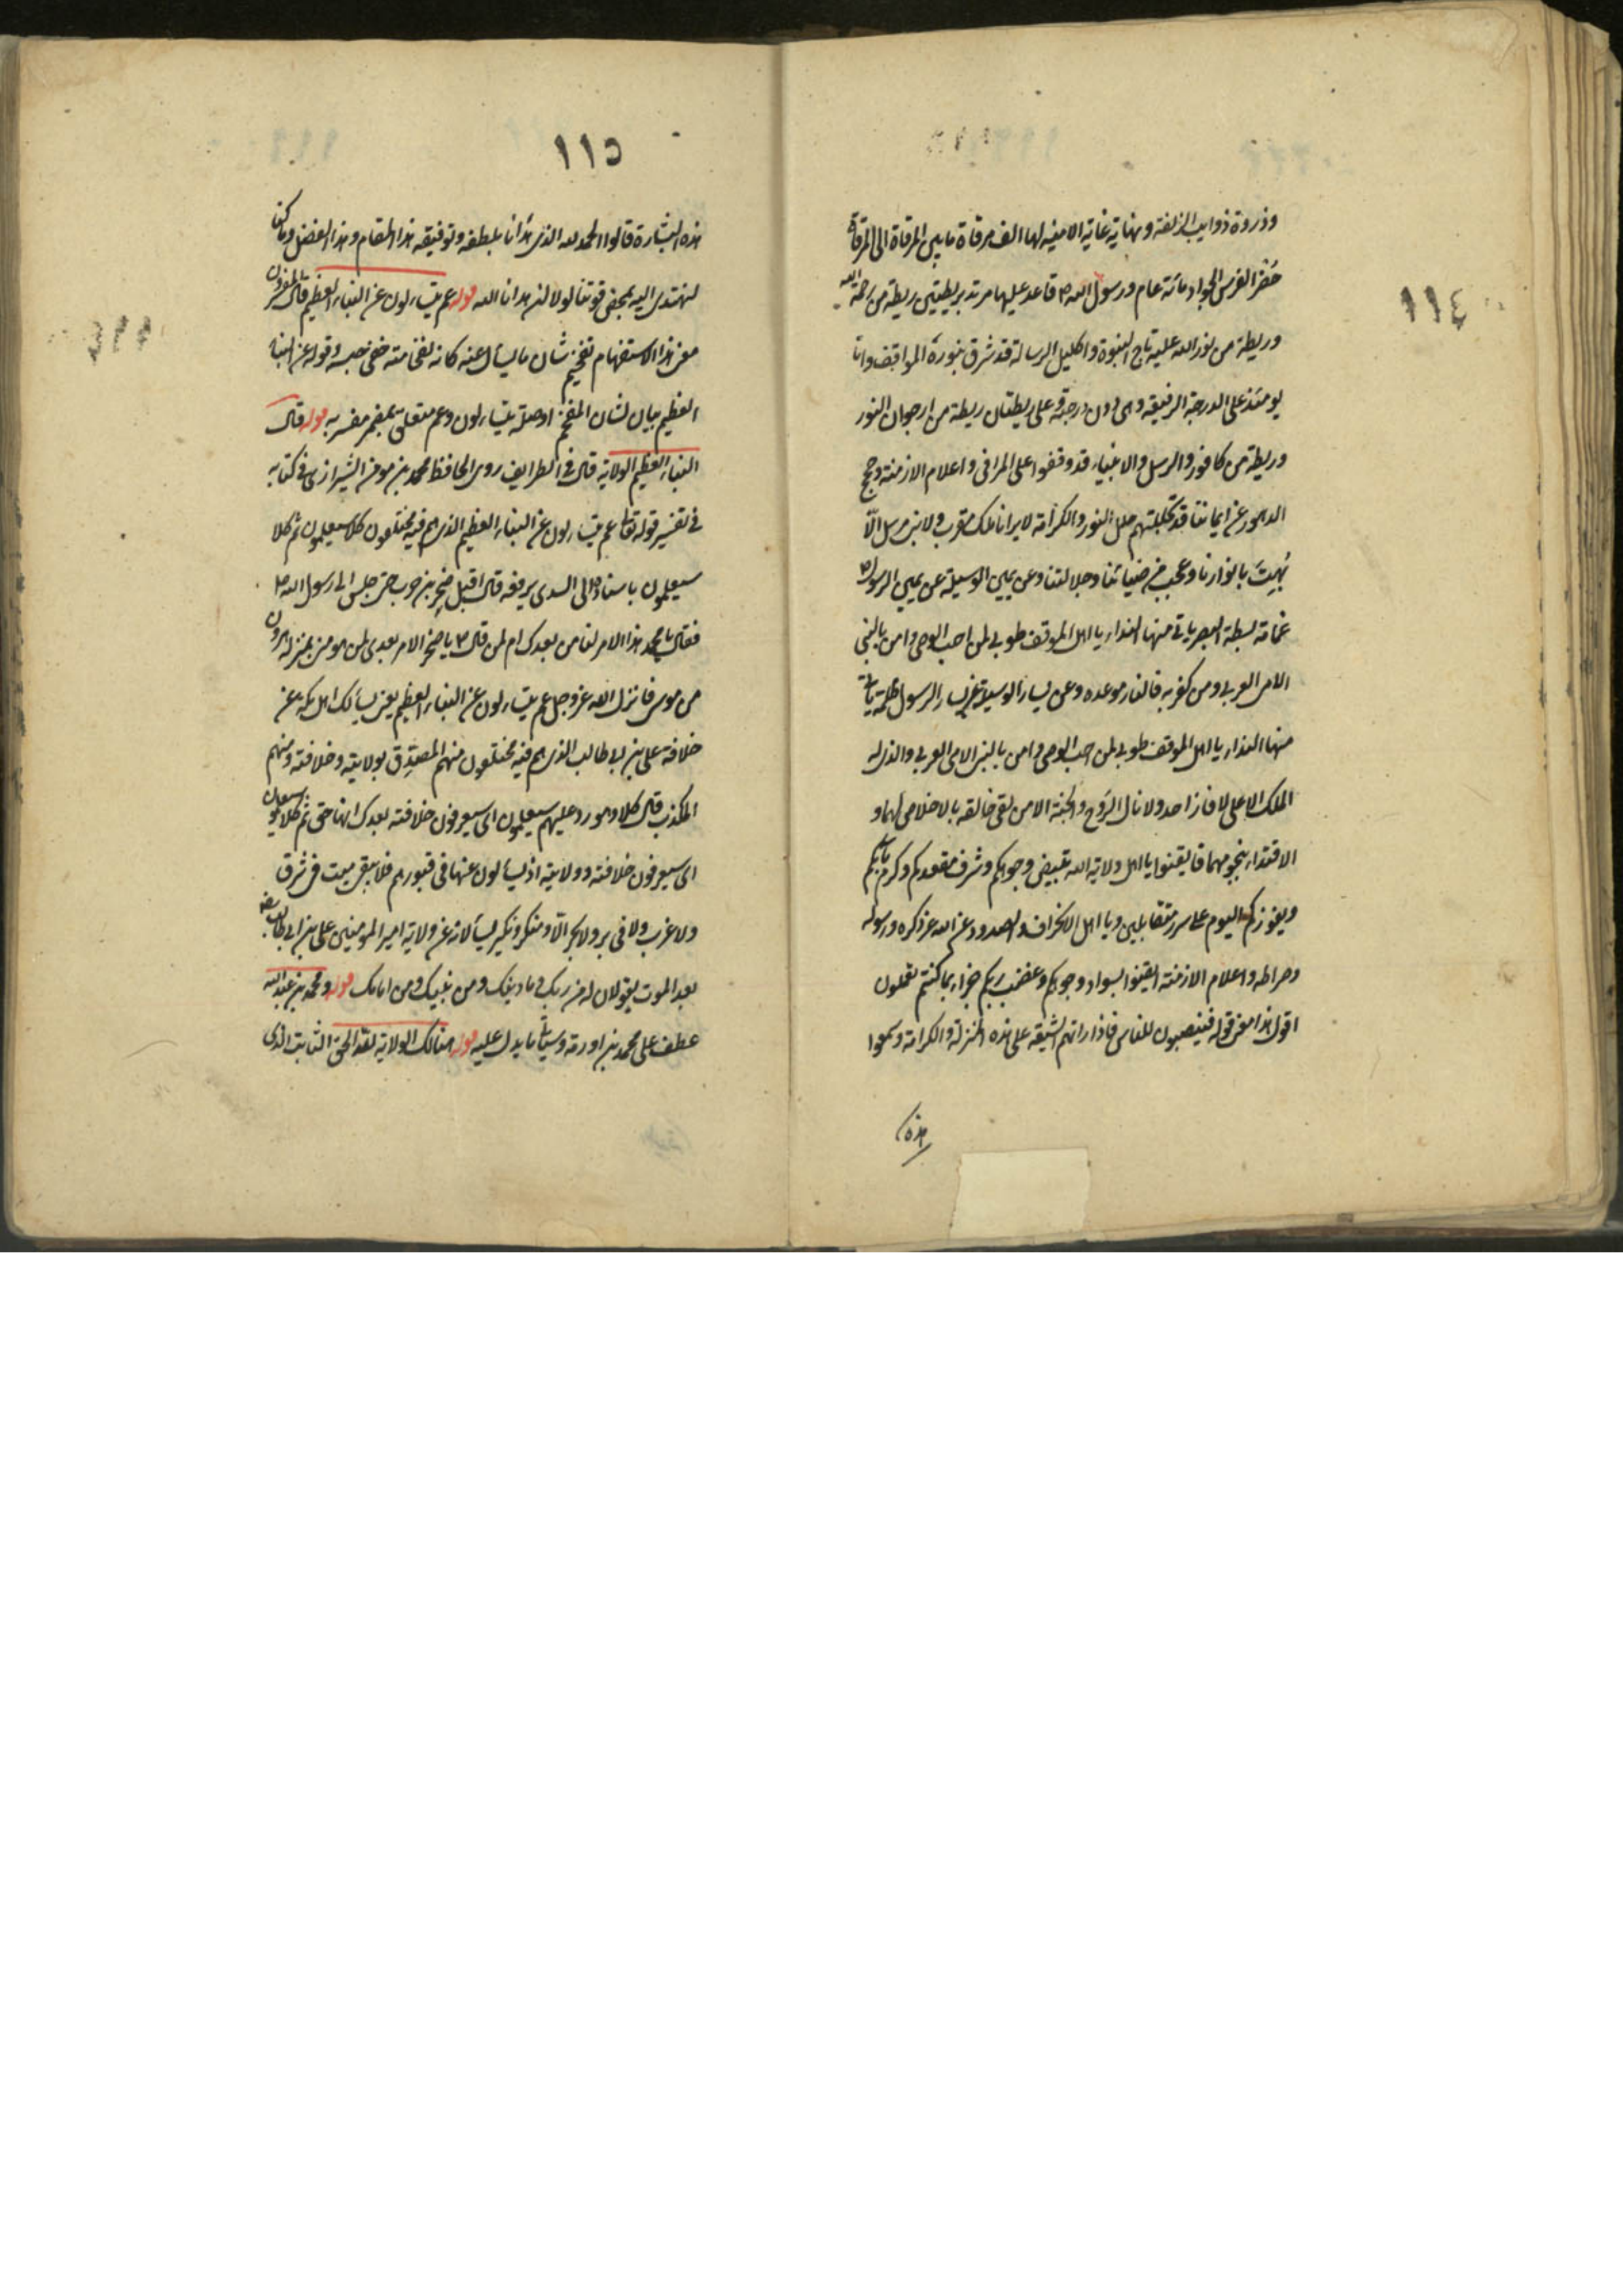 ١١٤
وذروة ذوايب الزلفة ونهاية غاية الامنية لها الف مرقاة ما بين المرقاة الى المرقاة
حضر الفرس الجواد مائة عام ورسول الله ص قاعد عليها مرتد بريطتين ريطة من رحمة الله
وريطة من نور الله عليه تاج النبوة واكليل الرسالة قد شرق بنوره المواقف وانا
يومئذ على الدرجة الرفيعة وهى دون درجته وعلى ريطتان ريطة من ارجوان النور
وريطة من كافور والرسل والانبياء قد وقفوا على المراقى واعلام الازمنة وحجج
الدهور عن ايماننا قد تجللتهم حلل النور والكرامة لا يرانا ملك مقرب ولا نبى مرسل الّا
بُهِتَ بانوارنا وعجب من ضيائنا وجلالتنا وعن يمين الوسيلة عن يمين الرسول ص
غمامة بسطة البصر ياتى منها النداء يا اهل الموقف طوبى لمن احب الوصى وامن بالنبى
الامى العربى ومن كفر به فالنار موعده وعن يسار الوسيلة عن يسار الرسول ظلة ياتى
منها النداء يا اهل الموقف طوبى لمن احب الوصى وامن بالنبى الامى العربى والذى له
الملك الاعلى لا فاز احد ولا نال الرَوح والجنة الا من لقى خالقه بالاخلاص لهما و
الاقتداء بنجومهما فايقنوا يا اهل ولاية الله بتبييض وجوهكم وشرف مقعدكم وكرم مآبكم
وبفوزكم اليوم على سرر متقابلين ويا اهل الانحراف والصدود عن الله عز ذكره ورسوله
وصراطه واعلام الازمنة ايقنوا بسواد وجوهكم وغضب ربكم جزاء بما كنتم تعملون
اقول هذا معنى قوله فينصبون للناس فاذا راتهم الشيعة على هذه المنزلة والكرامة وسمعوا
هذه
١١٥
هذه البشارة قالوا الحمد لله الذى هدانا بلطفه وتوفيقه هذا المقام وهذا الفضل وما كنا
لنهتدى اليه بمحض قوتنا لولا ان هدانا الله قوله عم يتساءلون عن النباء العظيم قال المفسرون
معنى هذا الاستفهام تفخيم شان ما يسال عنه كانه لفخامته خفى جنسه وقوله عن النباء
العظيم بيان لشان المفخم او صلة يتساءلون وعم متعلق بمضمر مفسر به قوله قال
النباء العظيم الولاية قال فى الطرايف روى الحافظ محمد بن مومن الشيرازى فى كتابه
فى تفسير قوله تعالى عم يتساءلون عن النباء العظيم الذى هم فيه مختلفون كلا سيعلمون ثم كلا
سيعلمون باسناده الى السدى يرفعه قال اقبل صخر بن حرب حتى جلس الى رسول الله ص
فقال يا محمد هذا الامر لنا من بعدك ام لمن قال ص يا صخر الامر بعدى لمن هو منى بمنزلة هرون
من موسى فانزل الله عز وجل عم يتساءلون عن النباء العظيم يعنى يسألك اهل مكة عن
خلافة على بن ابى طالب الذى هم فيه مختلفون منهم المصدِّق بولايته وخلافته ومنهم
المكذب قال كلا وهو رد عليهم سيعلمون اى سيعرفون خلافته بعدك انها حق ثم كلا سيعلمون
اى سيعرفون خلافته وولايته اذ يسألون عنها فى قبورهم فلا يبقى ميت فى شرق
ولا غرب ولا فى بر ولا بحر الّا ومنكر ونكير يسألانه عن ولاية امير المومنين على بن ابى طالب
بعد الموت يقولان له من ربك وما دينك ومن نبيك ومن امامك قوله ومحمد بن عبد الله
عطف على محمد بن اورمة وسياتى ما يدل عليه قوله هنالك الولاية لله الحق الثابت الذى